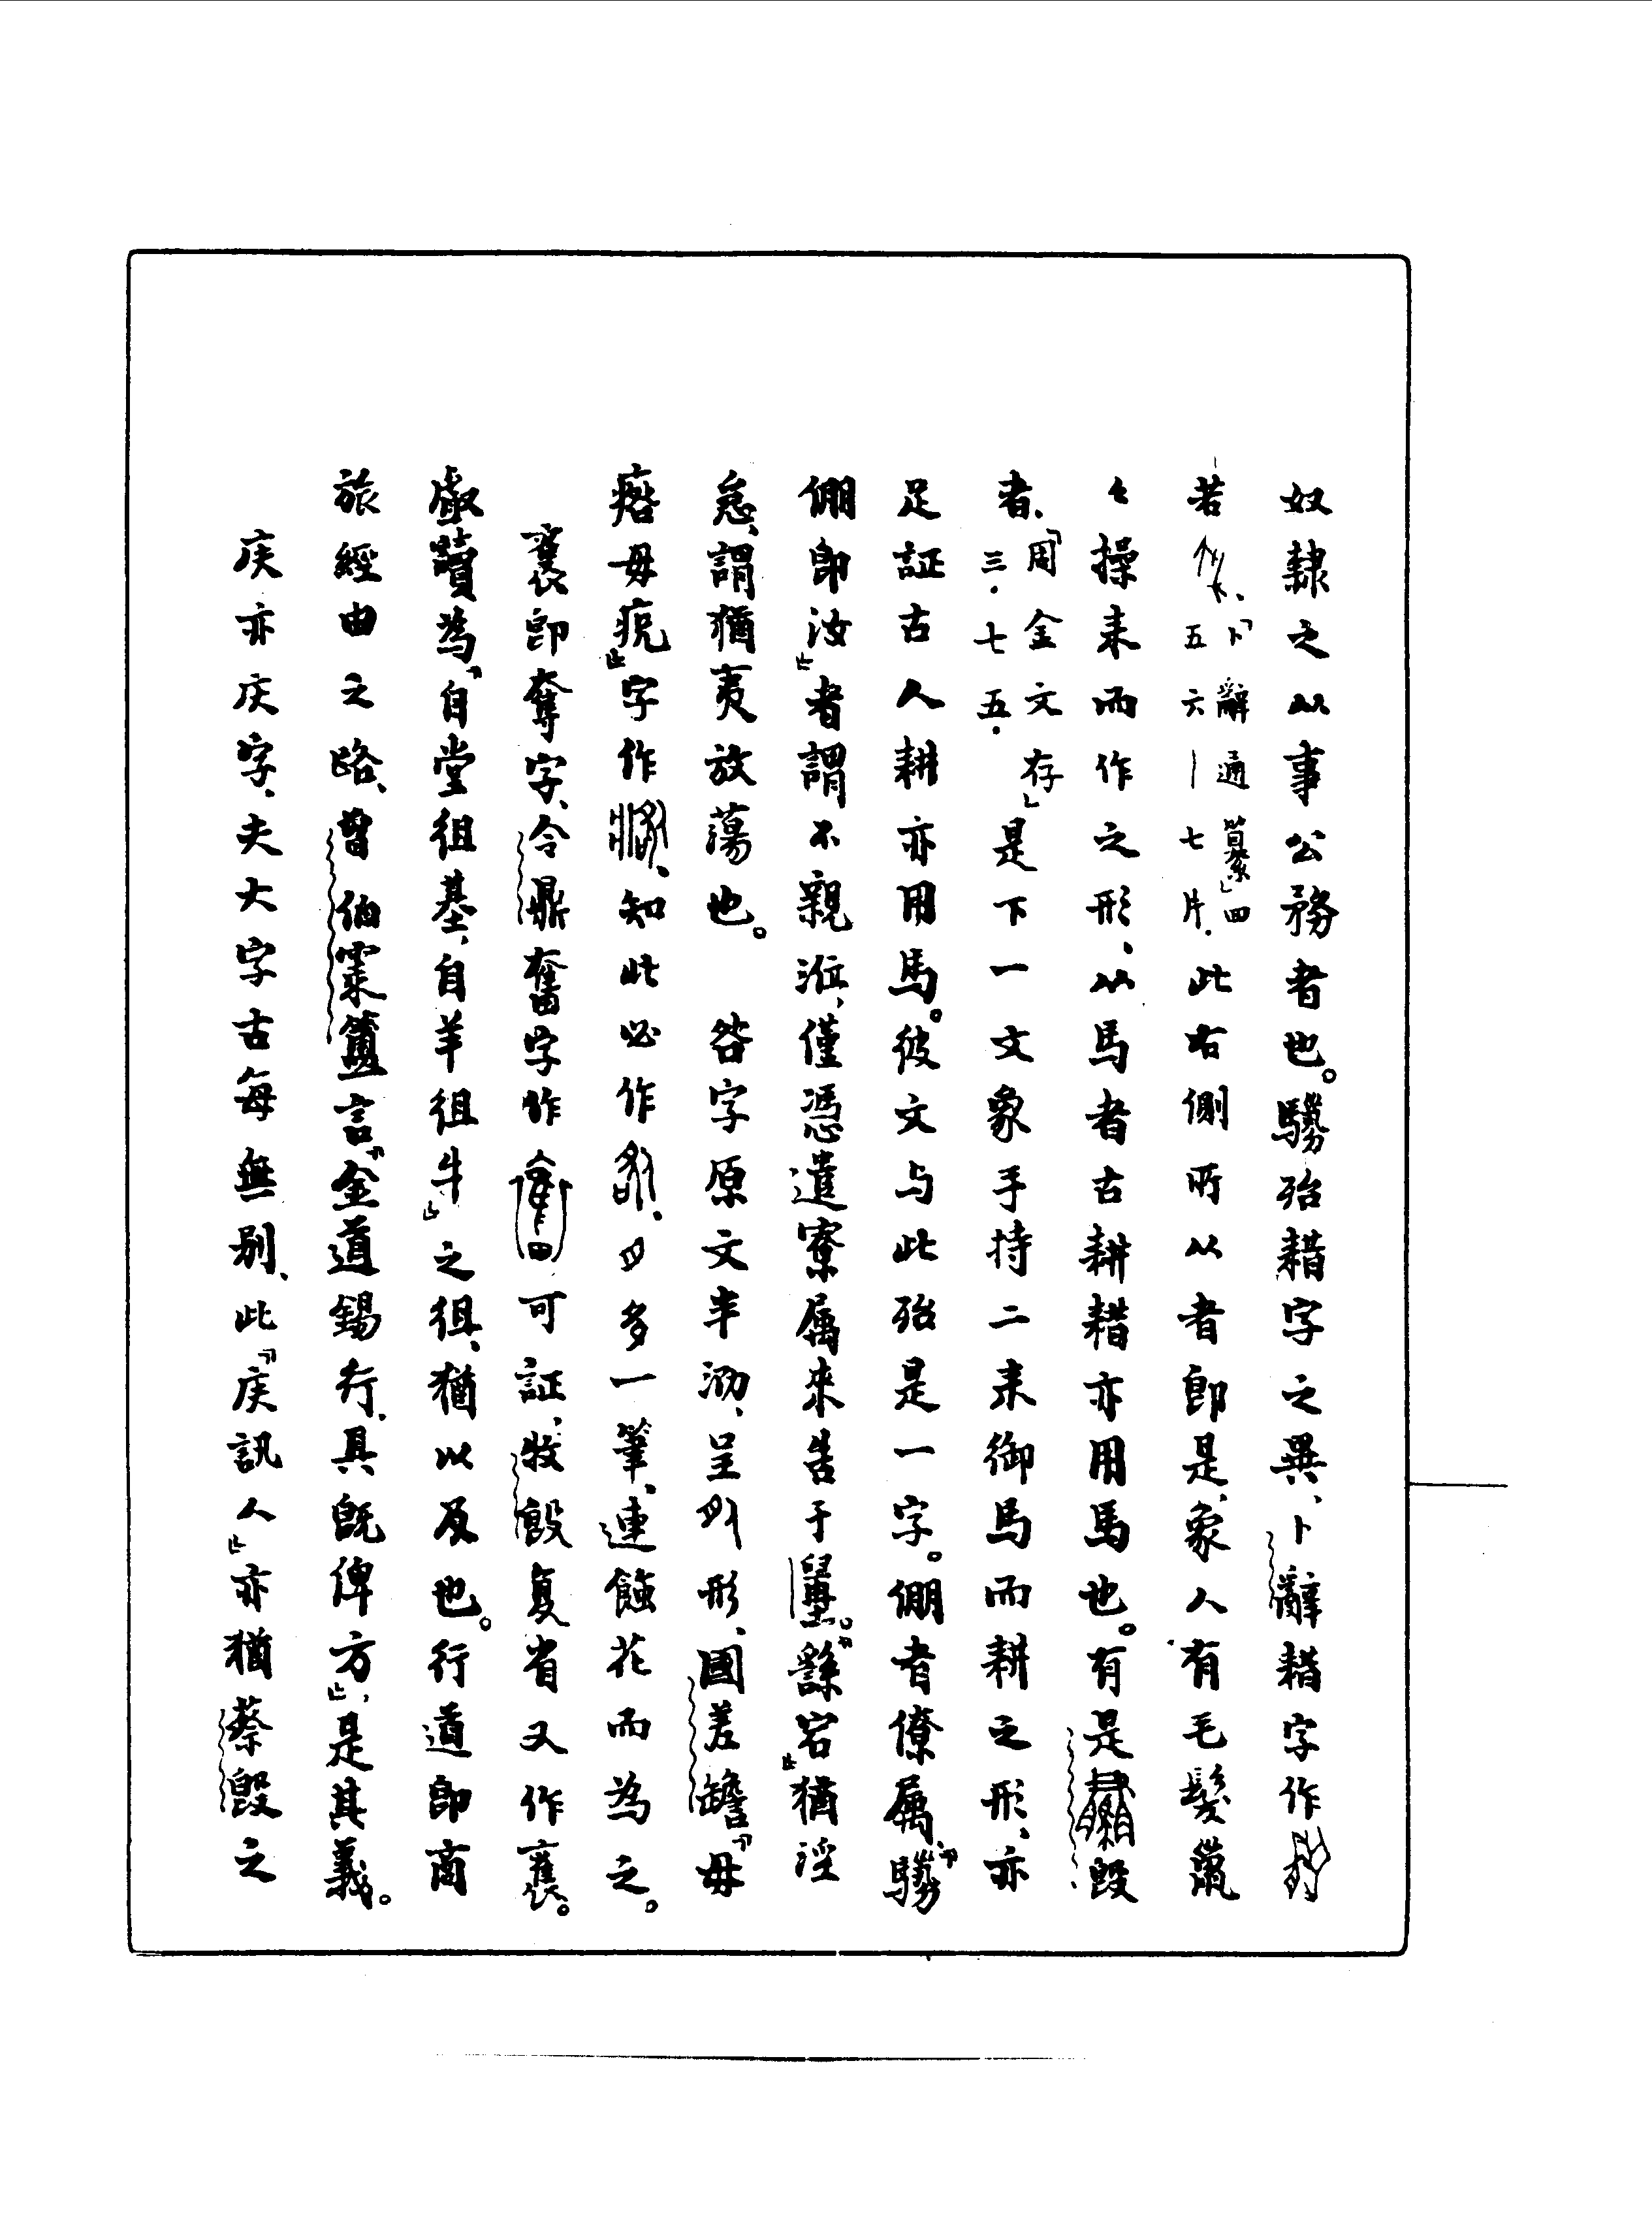 奴隸之从事公務者也。騳殆耤字之異、卜辭耤字作
若、「卜辭通纂」四五六—七片.此右側所从者卽是、象人有毛髮鬣
〻操耒而作之形、从馬者古耕耤亦用馬也。有是殷
者、「周金文存」三·七五.是下一文象手持二耒御馬而耕之形、亦
足証古人耕亦用馬。彼文与此殆是一字。倗者僚属、「騳
倗卽汝」者謂不親涖、僅憑遣寮属來告于。「繇宕」猶淫
怠、謂猶夷放蕩也。 咎字原文半泐、呈形、國差𦉜「毋
瘩毋痥」字作、知此必作、多一筆、連蝕花而為之。
襃卽奪字、令鼎奮字作可証、牧𣪘复省又作襃。
𠭯讀為「自堂徂基、自羊徂牛」之徂、猶以及也。行道卽商
旅經由之路、曾伯霥簠言「金道錫行、具旣俾方」、是其義。
厌亦厌字、夫大字古每無別、此「厌訊人」亦猶蔡𣪘之